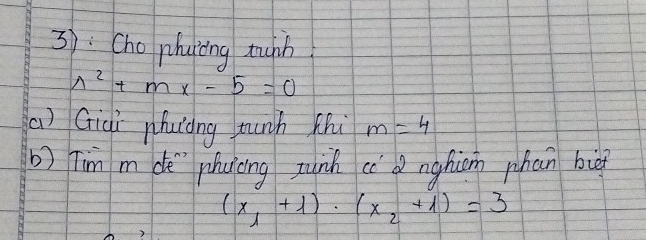 3): Cho phương trình:
x² + mx - 5 = 0
a) Giải phương trình khi m = 4
b) Tìm m để phương trình có 2 nghiệm phân biệt
(x₁ + 1) . (x₂ + 1) = 3